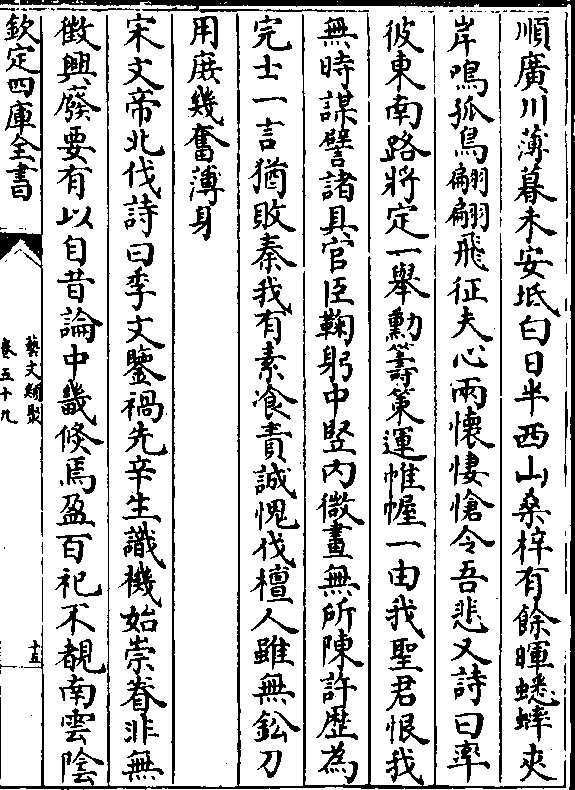 順廣川薄暮未安坻白日半西山桑梓有餘暉蟋蟀夾
岸鳴孤鳥翩翩飛征夫心兩懷悽愴令吾悲又詩曰率
彼東南路將定一舉勳籌策運帷幄一由我聖君恨我
無時謀譬諸具官臣鞠躬中堅內微畫無所陳許歷為
完士一言猶敗秦我有素飡責誠愧伐檀人雖無鈆刀
用庶幾奮薄身
宋文帝北伐詩曰季文鑒禍先辛生識機始崇眷非無
徵興廢要有以自昔論中畿倐焉盈百祀不覩南雲陰
欽定四庫全書
藝文類聚
卷五十九
十五